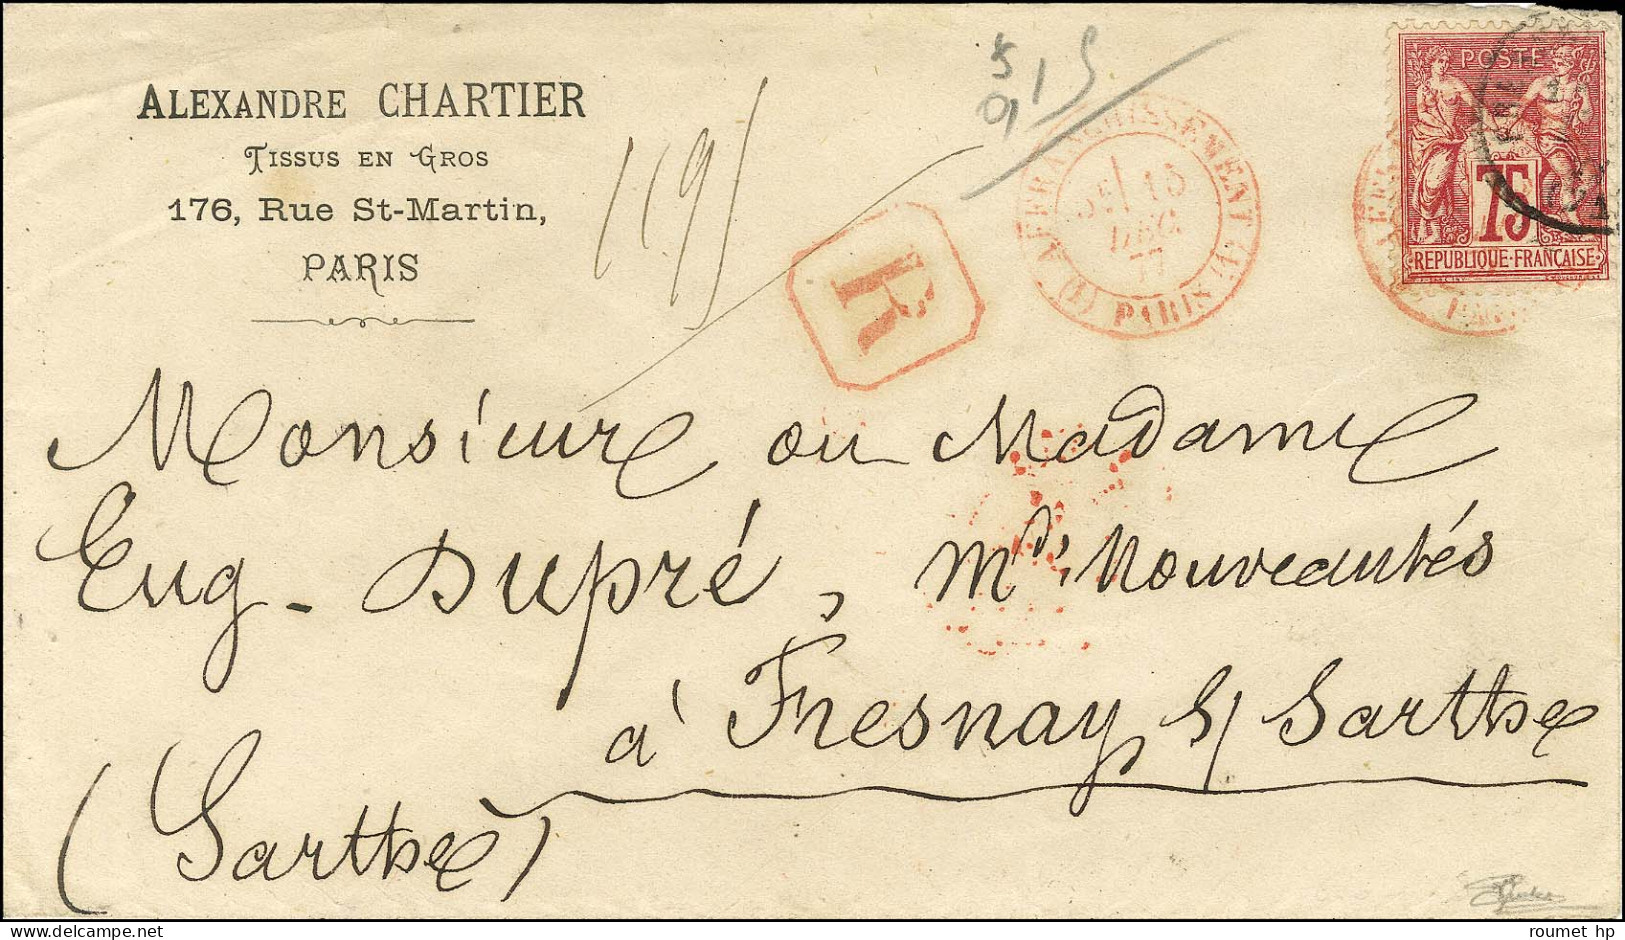 ALEXANDRE CHARTIER
TISSUS EN GROS
176, Rue St-Martin,
PARIS
119
515
9
R
AFFRANCHISSEMENT
15
DEC
77
(1) PARIS (1)
POSTE
75
REPUBLIQUE·FRANÇAISE
Monsieur ou Madame
Eug. Dupré, Md. Nouveautés
à Fresnay s/ Sarthe
(Sarthe)
roumet hp